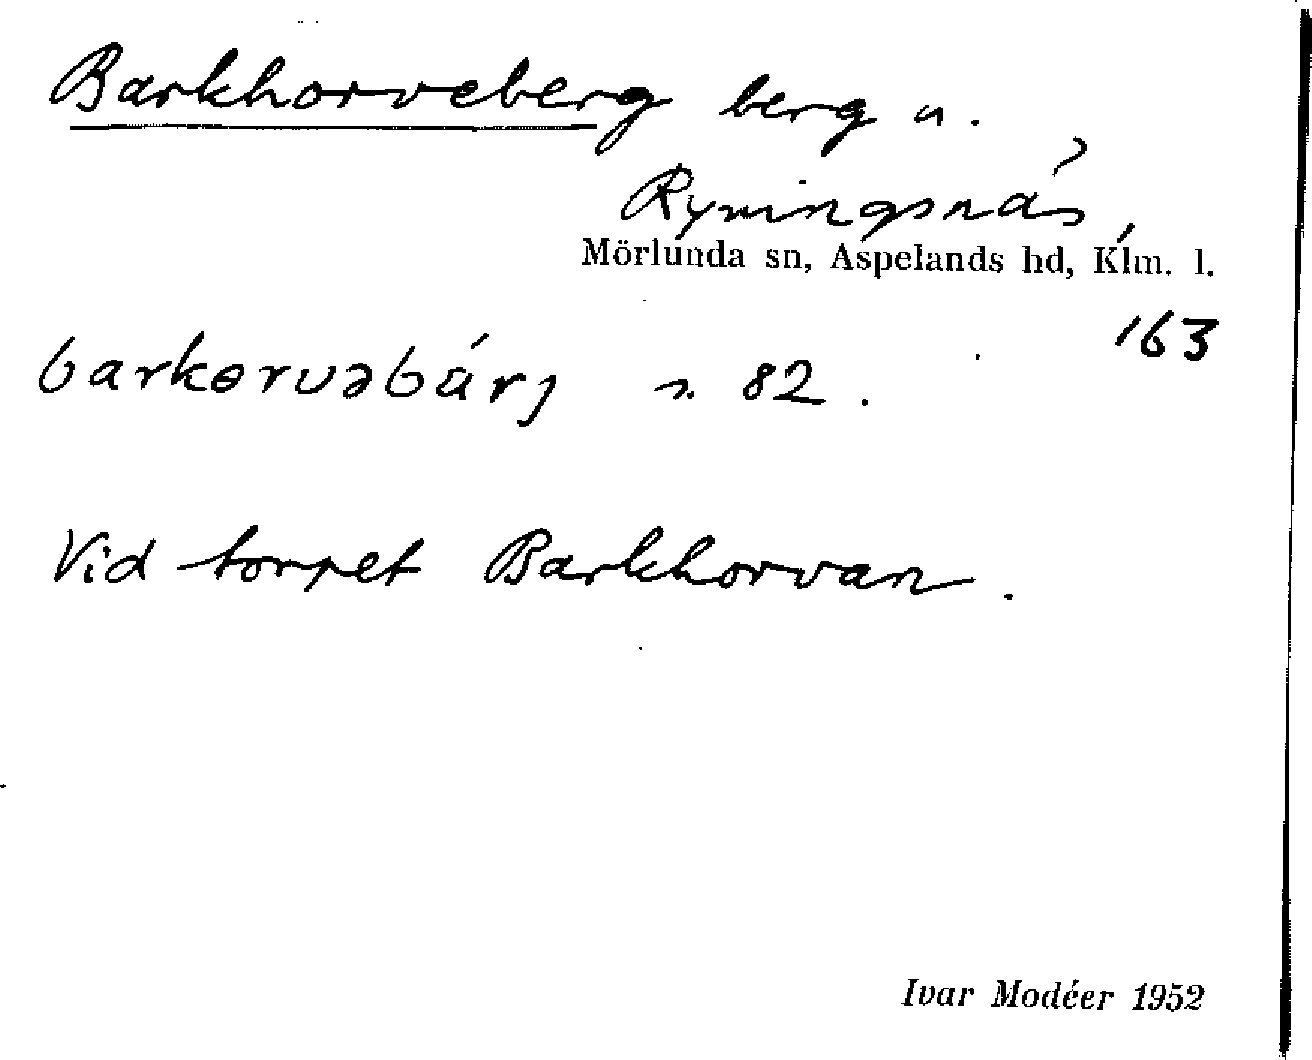 Barkhorveberg berg u.
Ryningsnäs,
Mörlunda sn, Aspelands hd, Klm. l.
163
barkɵrvəbárj s. 82.
Vid torpet Barkhorvan.
Ivar Modéer 1952